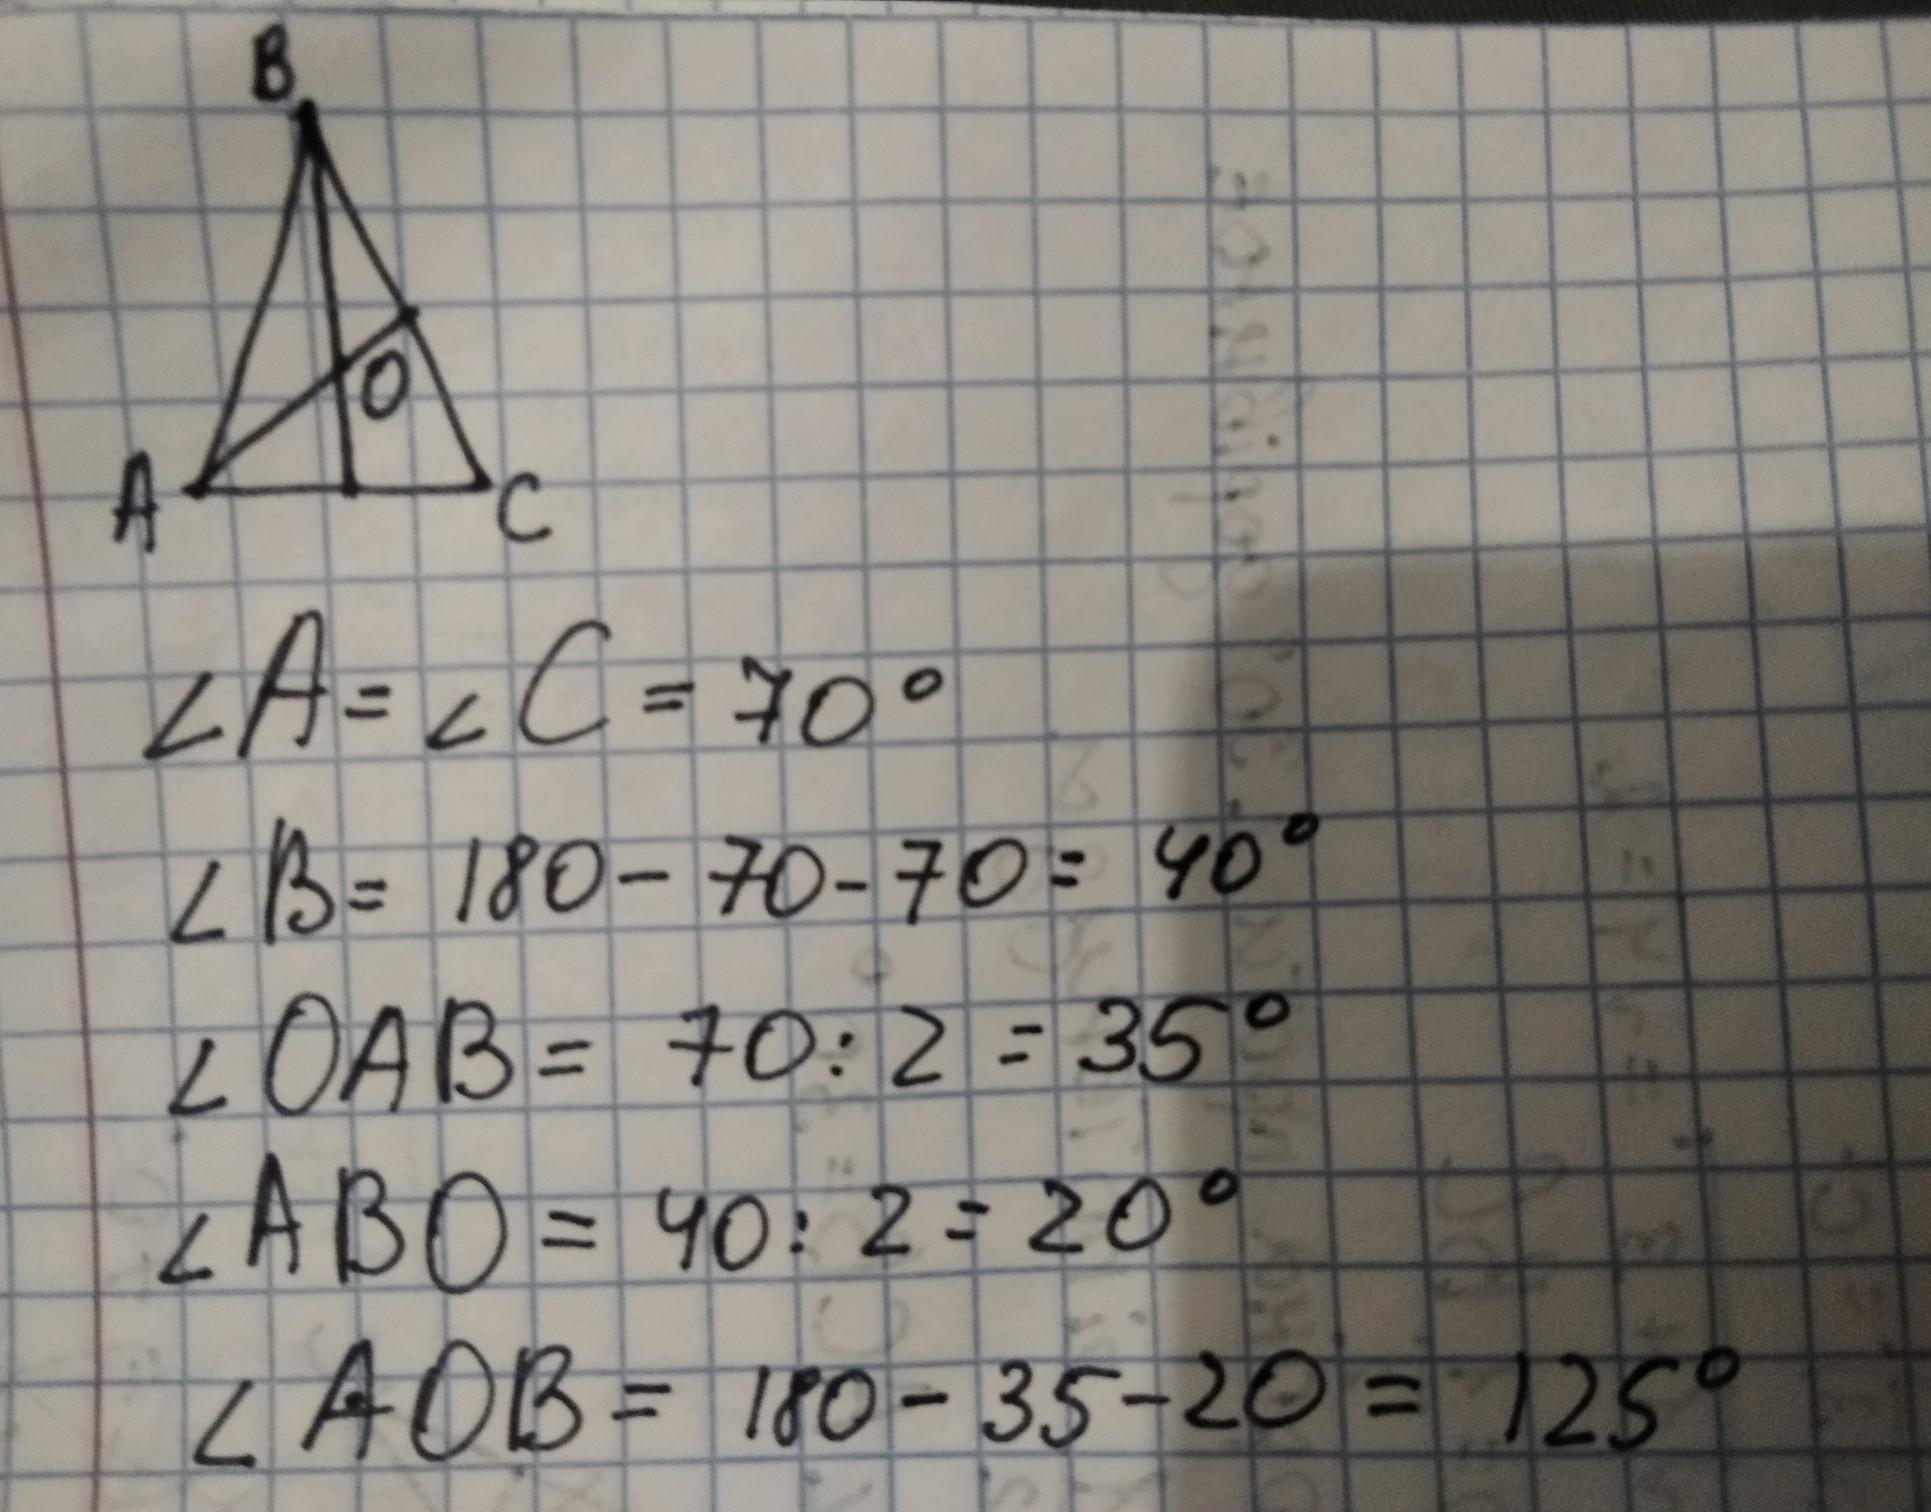 B
O
A
C
∠A = ∠C = 70°
∠B = 180 - 70 - 70 = 40°
∠OAB = 70 : 2 = 35°
∠ABO = 40 : 2 = 20°
∠AOB = 180 - 35 - 20 = 125°